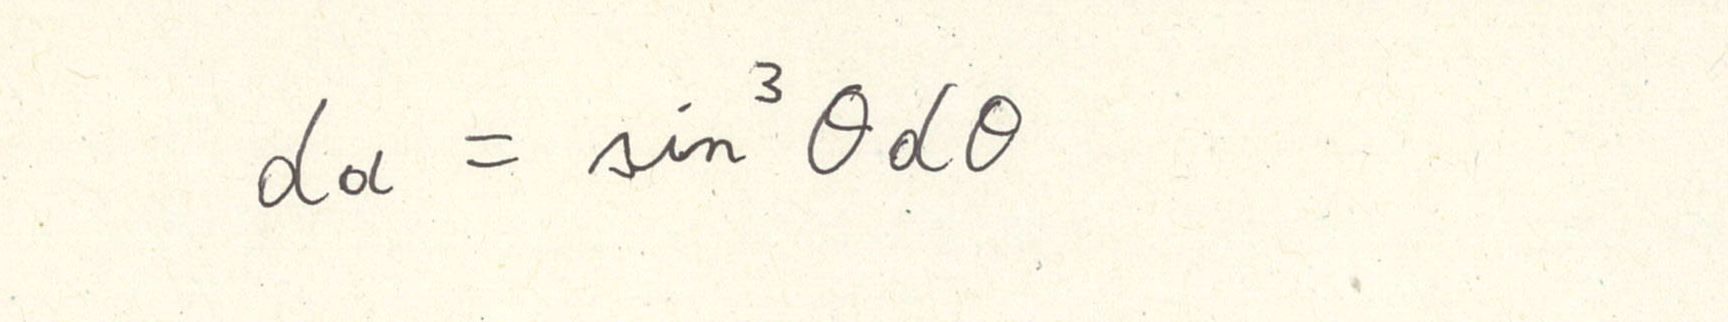 dα = sin³ θ dθ